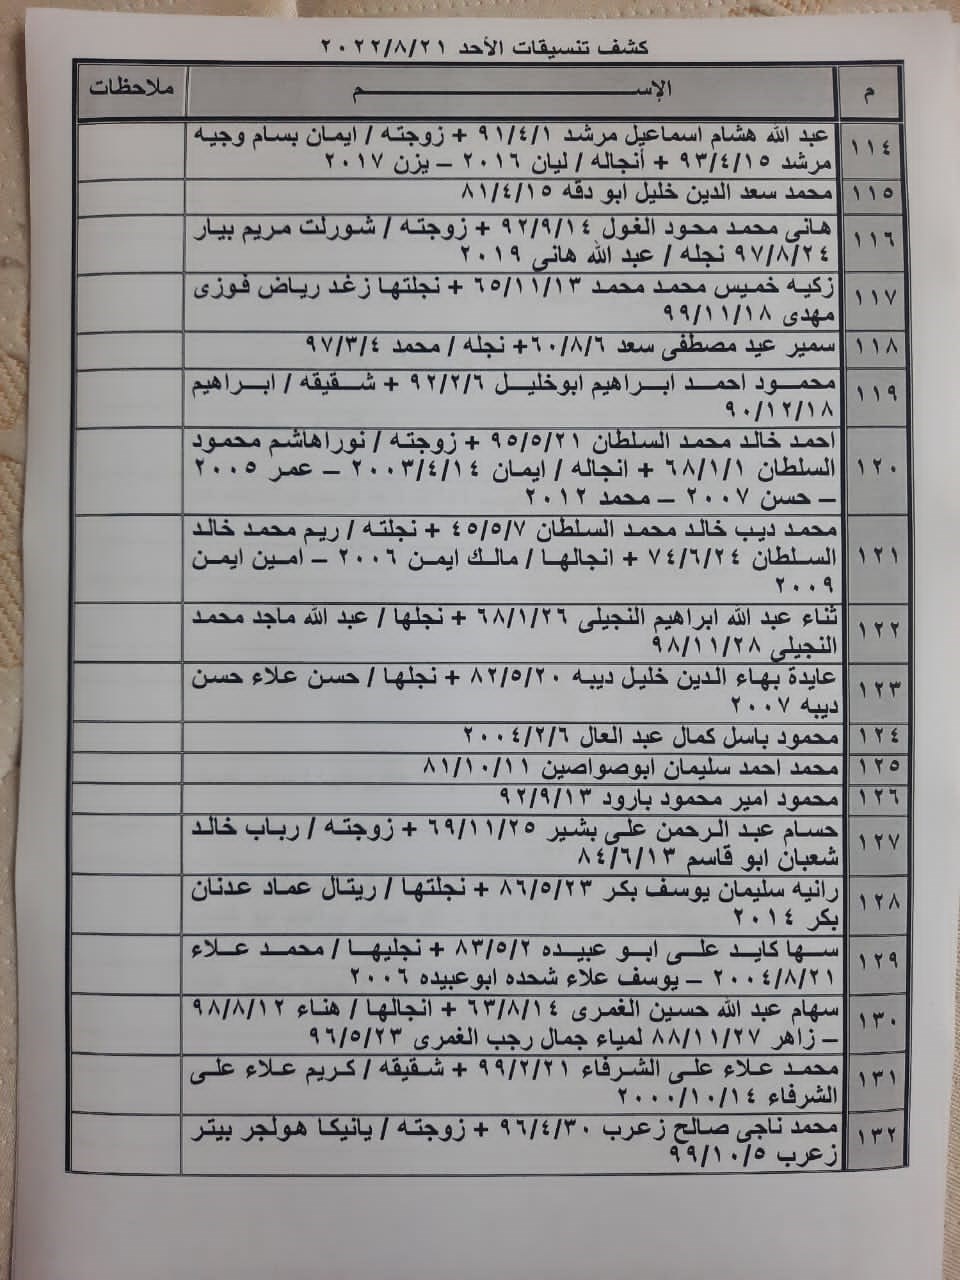 كشف تنسيقات الأحد ٢٠٢٢/٨/٢١
م الإســـم ملاحظات
١١٤ عبد الله هشام اسماعيل مرشد ٩١/٤/١ + زوجته / ايمان بسام وجيه
مرشد ٩٣/٤/١٥ + أنجاله / ليان ٢٠١٦ – يزن ٢٠١٧
١١٥ محمد سعد الدين خليل ابو دقه ٨١/٤/١٥
١١٦ هانى محمد محود الغول ٩٢/٩/١٤ + زوجته / شورلت مريم بيار
٩٧/٨/٢٤ نجله / عبد الله هانى ٢٠١٩
١١٧ زكيه خميس محمد محمد ٦٥/١١/١٣ + نجلتها زغد رياض فوزى
مهدى ٩٩/١١/١٨
١١٨ سمير عيد مصطفى سعد ٦٠/٨/٦+ نجله / محمد ٩٧/٣/٤
١١٩ محمود احمد ابراهيم ابوخليل ٩٢/٢/٦ + شقيقه / ابراهيم
٩٠/١٢/١٨
١٢٠ احمد خالد محمد السلطان ٩٥/٥/٢١ + زوجته / نوراهاشم محمود
السلطان ٦٨/١/١ + انجاله / ايمان ٢٠٠٣/٤/١٤ – عمر ٢٠٠٥
– حسن ٢٠٠٧ – محمد ٢٠١٢
١٢١ محمد ديب خالد محمد السلطان ٤٥/٥/٧ + نجلته / ريم محمد خالد
السلطان ٧٤/٦/٢٤ + انجالها / مالك ايمن ٢٠٠٦ – امين ايمن
٢٠٠٩
١٢٢ ثناء عبد الله ابراهيم النجيلى ٦٨/١/٢٦ + نجلها / عبد الله ماجد محمد
النجيلى ٩٨/١١/٢٨
١٢٣ عايدة بهاء الدين خليل ديبه ٨٢/٥/٢٠ + نجلها / حسن علاء حسن
ديبه ٢٠٠٧
١٢٤ محمود باسل كمال عبد العال ٢٠٠٤/٢/٦
١٢٥ محمد احمد سليمان ابوصواصين ٨١/١٠/١١
١٢٦ محمود امير محمود بارود ٩٢/٩/١٣
١٢٧ حسام عبد الرحمن على بشير ٦٩/١١/٢٥ + زوجته / رباب خالد
شعبان ابو قاسم ٨٤/٦/١٣
١٢٨ رانيه سليمان يوسف بكر ٨٦/٥/٢٣ + نجلتها / ريتال عماد عدنان
بكر ٢٠١٤
١٢٩ سها كايد على ابو عبيده ٨٣/٥/٢ + نجليها / محمد علاء
٢٠٠٤/٨/٢١ – يوسف علاء شحده ابوعبيده ٢٠٠٦
١٣٠ سهام عبد الله حسين الغمرى ٦٣/٨/١٤ + انجالها / هناء ٩٨/٨/١٢
– زاهر ٨٨/١١/٢٧ لمياء جمال رجب الغمرى ٩٦/٥/٢٣
١٣١ محمد علاء على الشرفاء ٩٩/٢/٢١ + شقيقه / كريم علاء على
الشرفاء ٢٠٠٠/١٠/١٤
١٣٢ محمد ناجى صالح زعرب ٩٦/٤/٣٠ + زوجته / يانيكا هولجر بيتر
زعرب ٩٩/١٠/٥